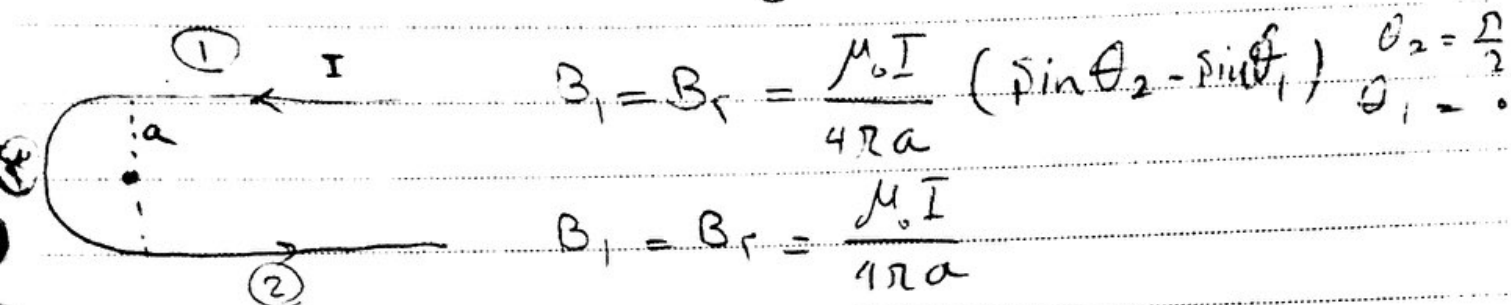 ① I B₁ = B₂ = μ₀I / 4πa (sin θ₂ - sin θ₁) θ₂ = π/2
a θ₁ = 0
B₁ = B₂ = μ₀I / 4πa
②